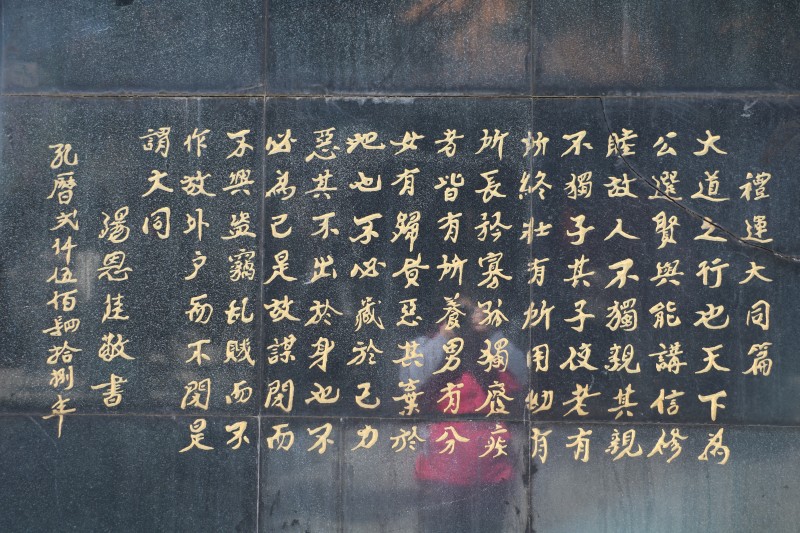 禮運大同篇
大道之行也天下為
公選賢與能講信修
睦故人不獨親其親
不獨子其子使老有
所終壯有所用幼有
所長矜寡孤獨廢疾
者皆有所養男有分
女有歸貨惡其棄於
地也不必藏於己力
惡其不出於身也不
必為己是故謀閉而
不興盜竊乱賊而不
作故外戶而不閉是
謂大同
恩佳敬書
孔曆弍仟伍佰肆拾捌年